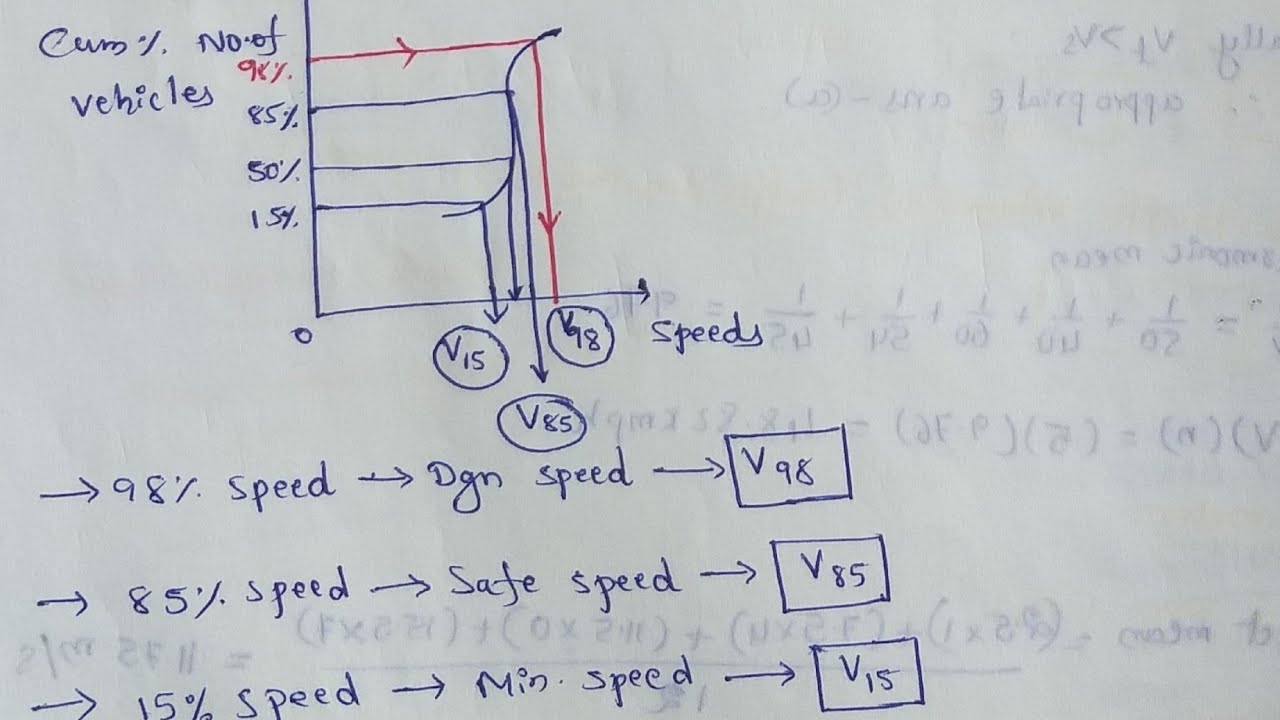 Cum % No. of
vehicles
98%
85%
50%
15%
0
V15
V98
Speeds
V85
→ 98% speed → Dgn speed → V98
→ 85% speed → Safe speed → V85
→ 15% speed → Min. speed → V15